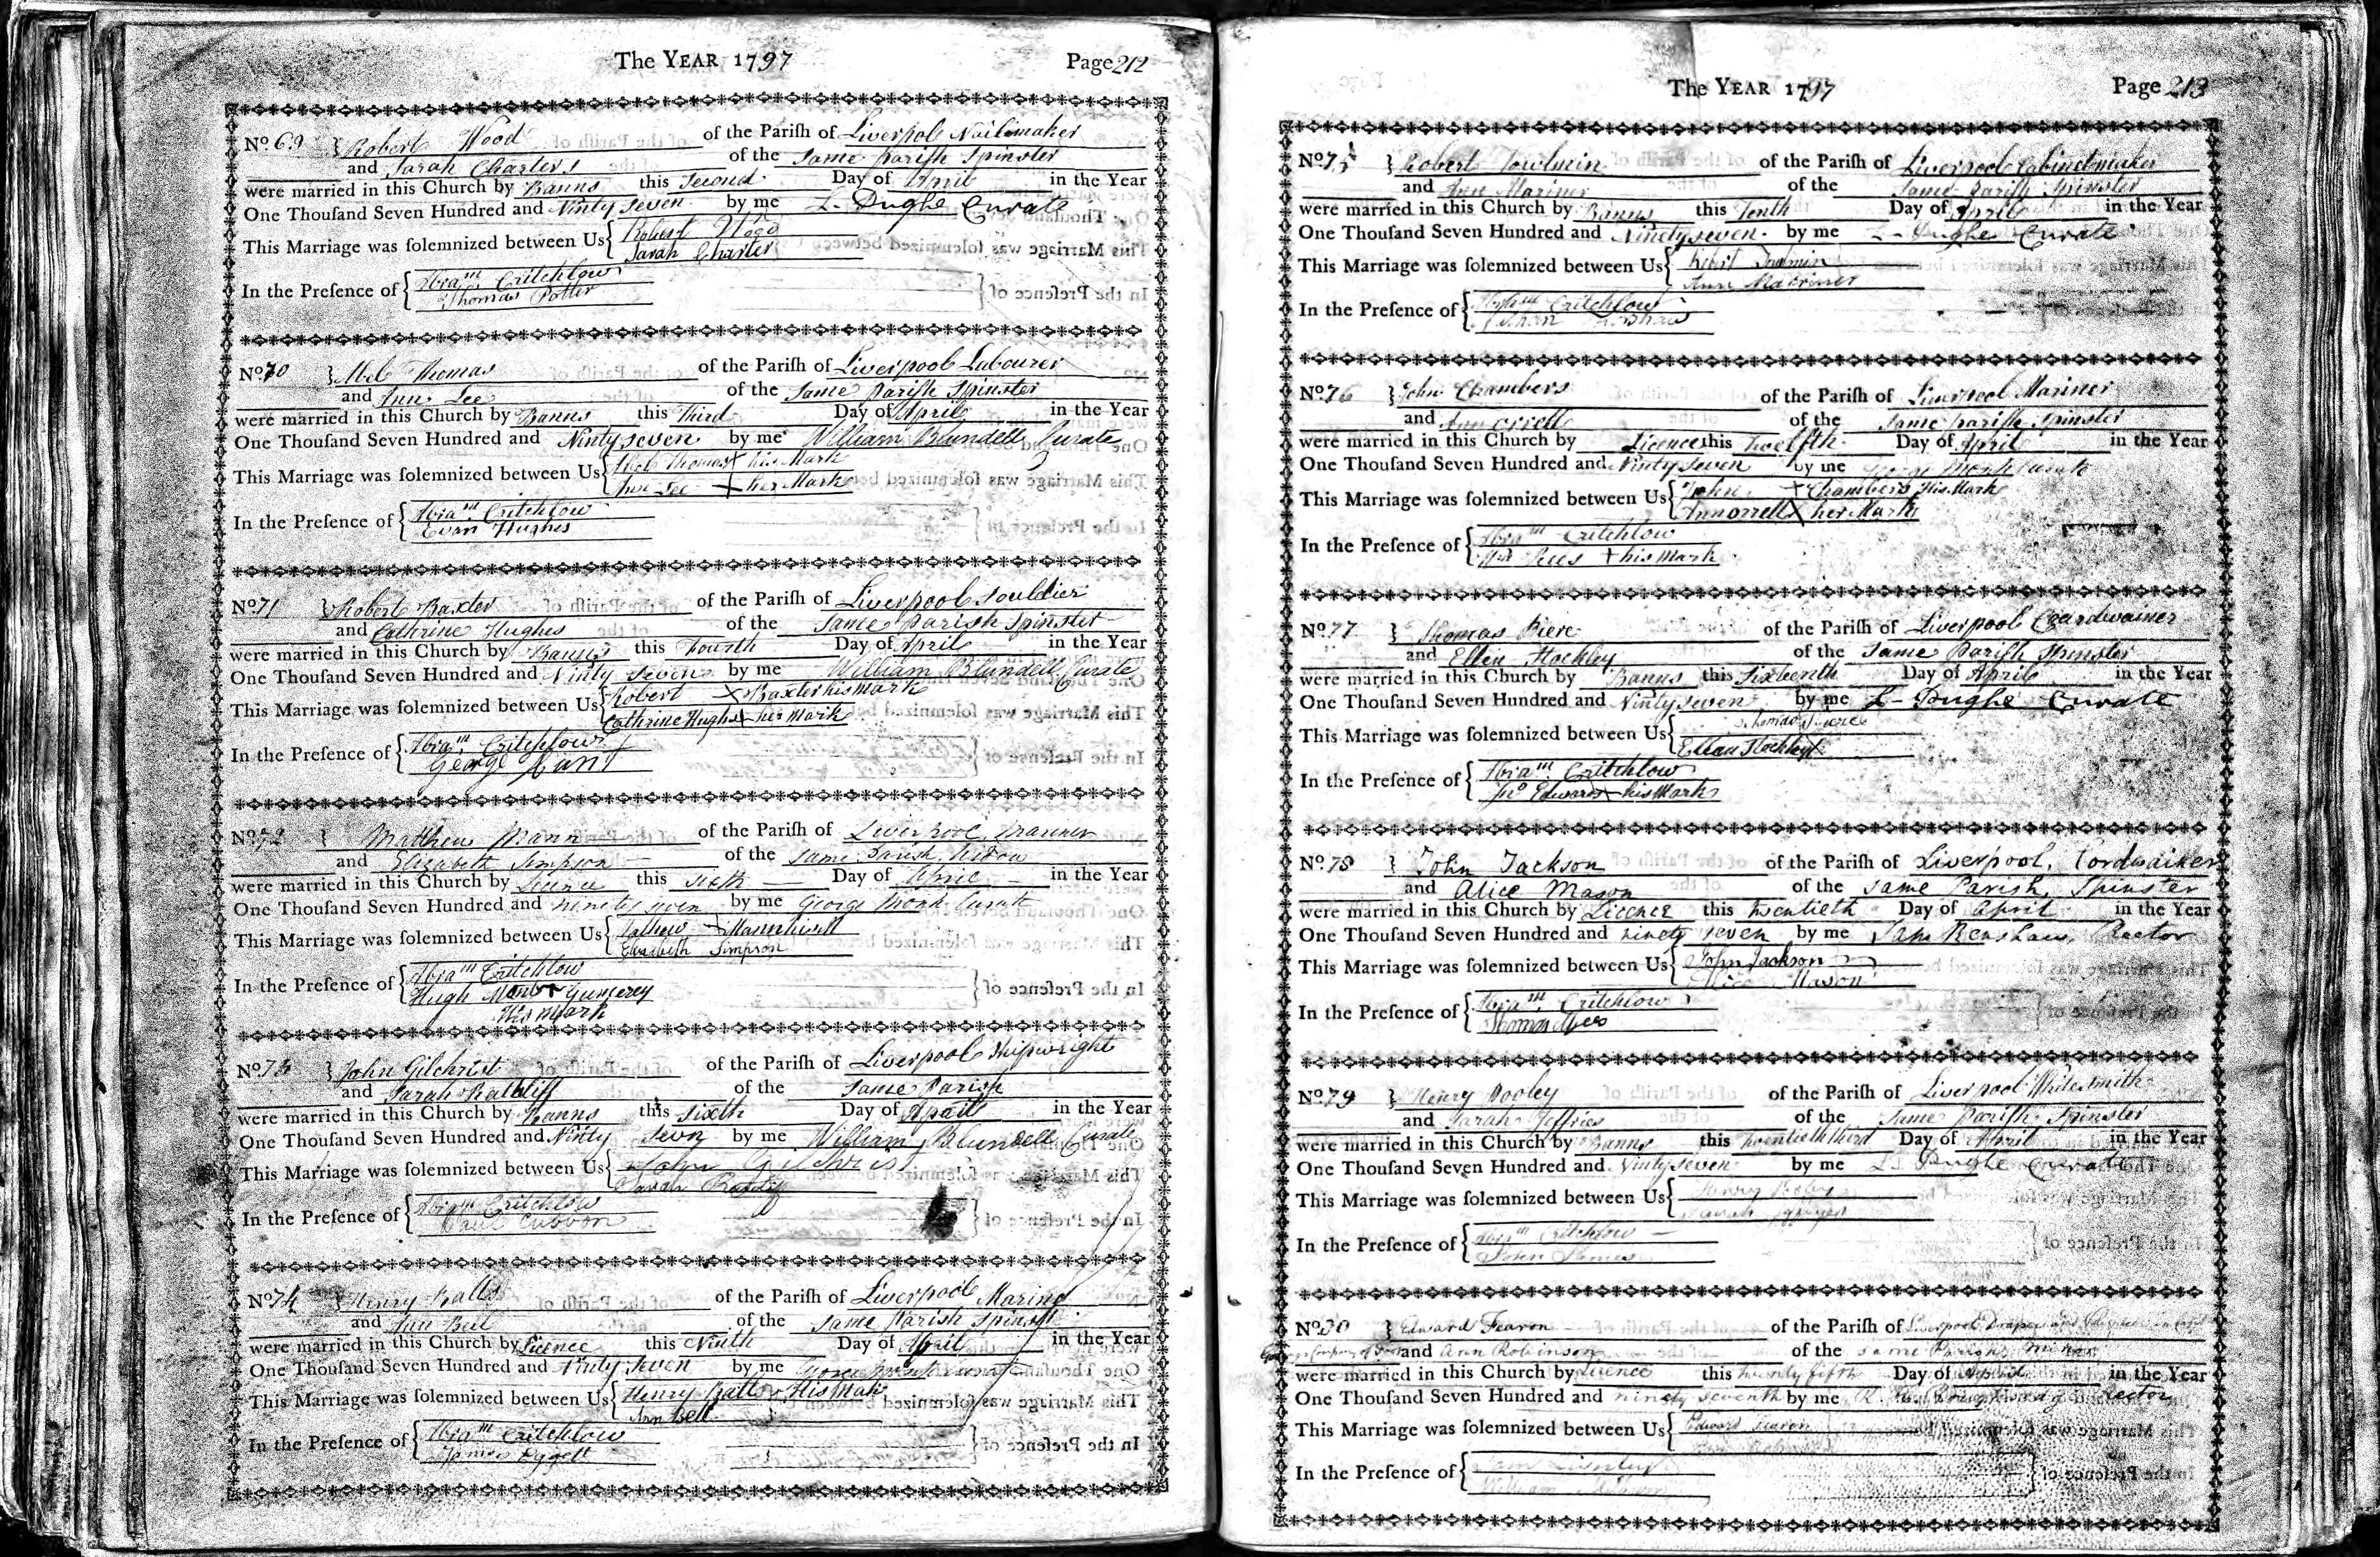 The YEAR 1797 Page 212
No. 69 } Robert Wood of the Pariſh of Liverpool Nailmaker
and Sarah Charters of the Same Pariſh Spinster
were married in this Church by Banns this Second Day of April in the Year
One Thouſand Seven Hundred and Ninty Seven by me L. Pughe Curate
This Marriage was ſolemnized between Us { Robert Wood
Sarah Charter
In the Preſence of { Abram Critchlow
Thomas Potter
No. 70 } Abel Thomas of the Pariſh of Liverpool Labourer
and Ann Lee of the Same Pariſh Spinster
were married in this Church by Banns this Third Day of April in the Year
One Thouſand Seven Hundred and Ninty seven by me William Blundell Curate
This Marriage was ſolemnized between Us { Abel Thomas X his Mark
Ann Lee + her Mark
In the Preſence of { Abram Critchlow
Evan Hughes
No. 71 } Robert Baxter of the Pariſh of Liverpool Souldier
and Cathrine Hughes of the Same Parish Spinster
were married in this Church by Banns this Fourth Day of April in the Year
One Thouſand Seven Hundred and Ninty Seven by me William Blundell Curate
This Marriage was ſolemnized between Us { Robert X Baxter his Mark
Cathrine Hughs + her Mark
In the Preſence of { Abram Critchlow
George
No. 72 } Matthew Mann of the Pariſh of Liverpool, Mariner
and Elizabeth Simpson of the same Parish, Widow
were married in this Church by Licence this sixth Day of April in the Year
One Thouſand Seven Hundred and ninety seven by me George Monk Curate
This Marriage was ſolemnized between Us {
Elizabeth Simpson
In the Preſence of { Abram Critchlow
Hugh
His Mark
No. 73 } John Gilchrist of the Pariſh of Liverpool Shipwright
and Sarah Ratcliff of the Same Parish
were married in this Church by Banns this Sixth Day of April in the Year
One Thouſand Seven Hundred and Ninty Sevn by me William Blundell Curate
This Marriage was ſolemnized between Us { John Gilchrist
Sarah
In the Preſence of { Abram Critchlow
Cubbon
No. 74 } Henry Balls of the Pariſh of Liverpool Marine
and Ann Bell of the Same Parish Spinster
were married in this Church by Licence this Ninth Day of April in the Year
One Thouſand Seven Hundred and Ninty Seven by me George Monk Curate
This Marriage was ſolemnized between Us { Henry Balls X His Mark
Ann Bell
In the Preſence of { Abram Critchlow
James
The YEAR 1797 Page 213
No. 75 } Robert Towlmin of the Pariſh of Liverpool Cabinetmaker
and Ann Mariner of the Same Parish Spinster
were married in this Church by Banns this Tenth Day of April in the Year
One Thouſand Seven Hundred and Ninety seven by me L. Pughe Curate
This Marriage was ſolemnized between Us {
Ann Marriner
In the Preſence of { Abram Critchlow
No. 76 } John Chambers of the Pariſh of Liverpool Mariner
and Ann Orrell of the Same Pariſh Spinster
were married in this Church by Licence this Twelfth Day of April in the Year
One Thouſand Seven Hundred and Ninty Seven by me George Monk Curate
This Marriage was ſolemnized between Us { John + Chambers His Mark
Ann Orrell X her Mark
In the Preſence of { Abram Critchlow
Wm Rees + his Mark
No. 77 } Thomas Piere of the Pariſh of Liverpool Coardwainer
and Ellin Stockley of the Same Pariſh Spinster
were married in this Church by Banns this Sixteenth Day of April in the Year
One Thouſand Seven Hundred and Ninty seven by me L. Pughe Curate
This Marriage was ſolemnized between Us { Thomas
Ellan Stockley
In the Preſence of { Abram Critchlow
Jno Edwards + his Mark
No. 78 } John Jackson of the Pariſh of Liverpool, Cordwainer
and Alice Mason of the same Parish, Spinster
were married in this Church by Licence this twentieth Day of April in the Year
One Thouſand Seven Hundred and ninety seven by me Saml Renshaw, Rector
This Marriage was ſolemnized between Us { John Jackson
Alice Mason
In the Preſence of { Abram Critchlow
Thomas
No. 79 } Henry Pooley of the Pariſh of Liverpool Whitesmith
and Sarah Jeffries of the Same Parish Spinster
were married in this Church by Banns this twentieth third Day of April in the Year
One Thouſand Seven Hundred and Ninty seven by me L. Pughe Curate
This Marriage was ſolemnized between Us { Henry
Sarah
In the Preſence of { Abram Critchlow
John James
No. 80 } Edward Fearon of the Pariſh of Liverpool Draper and
Company of and Ann Robinson of the same Parish,
were married in this Church by Licence this twenty fifth Day of April in the Year
One Thouſand Seven Hundred and ninety seventh by me R. Rector
This Marriage was ſolemnized between Us { Edward Fearon
In the Preſence of {
William